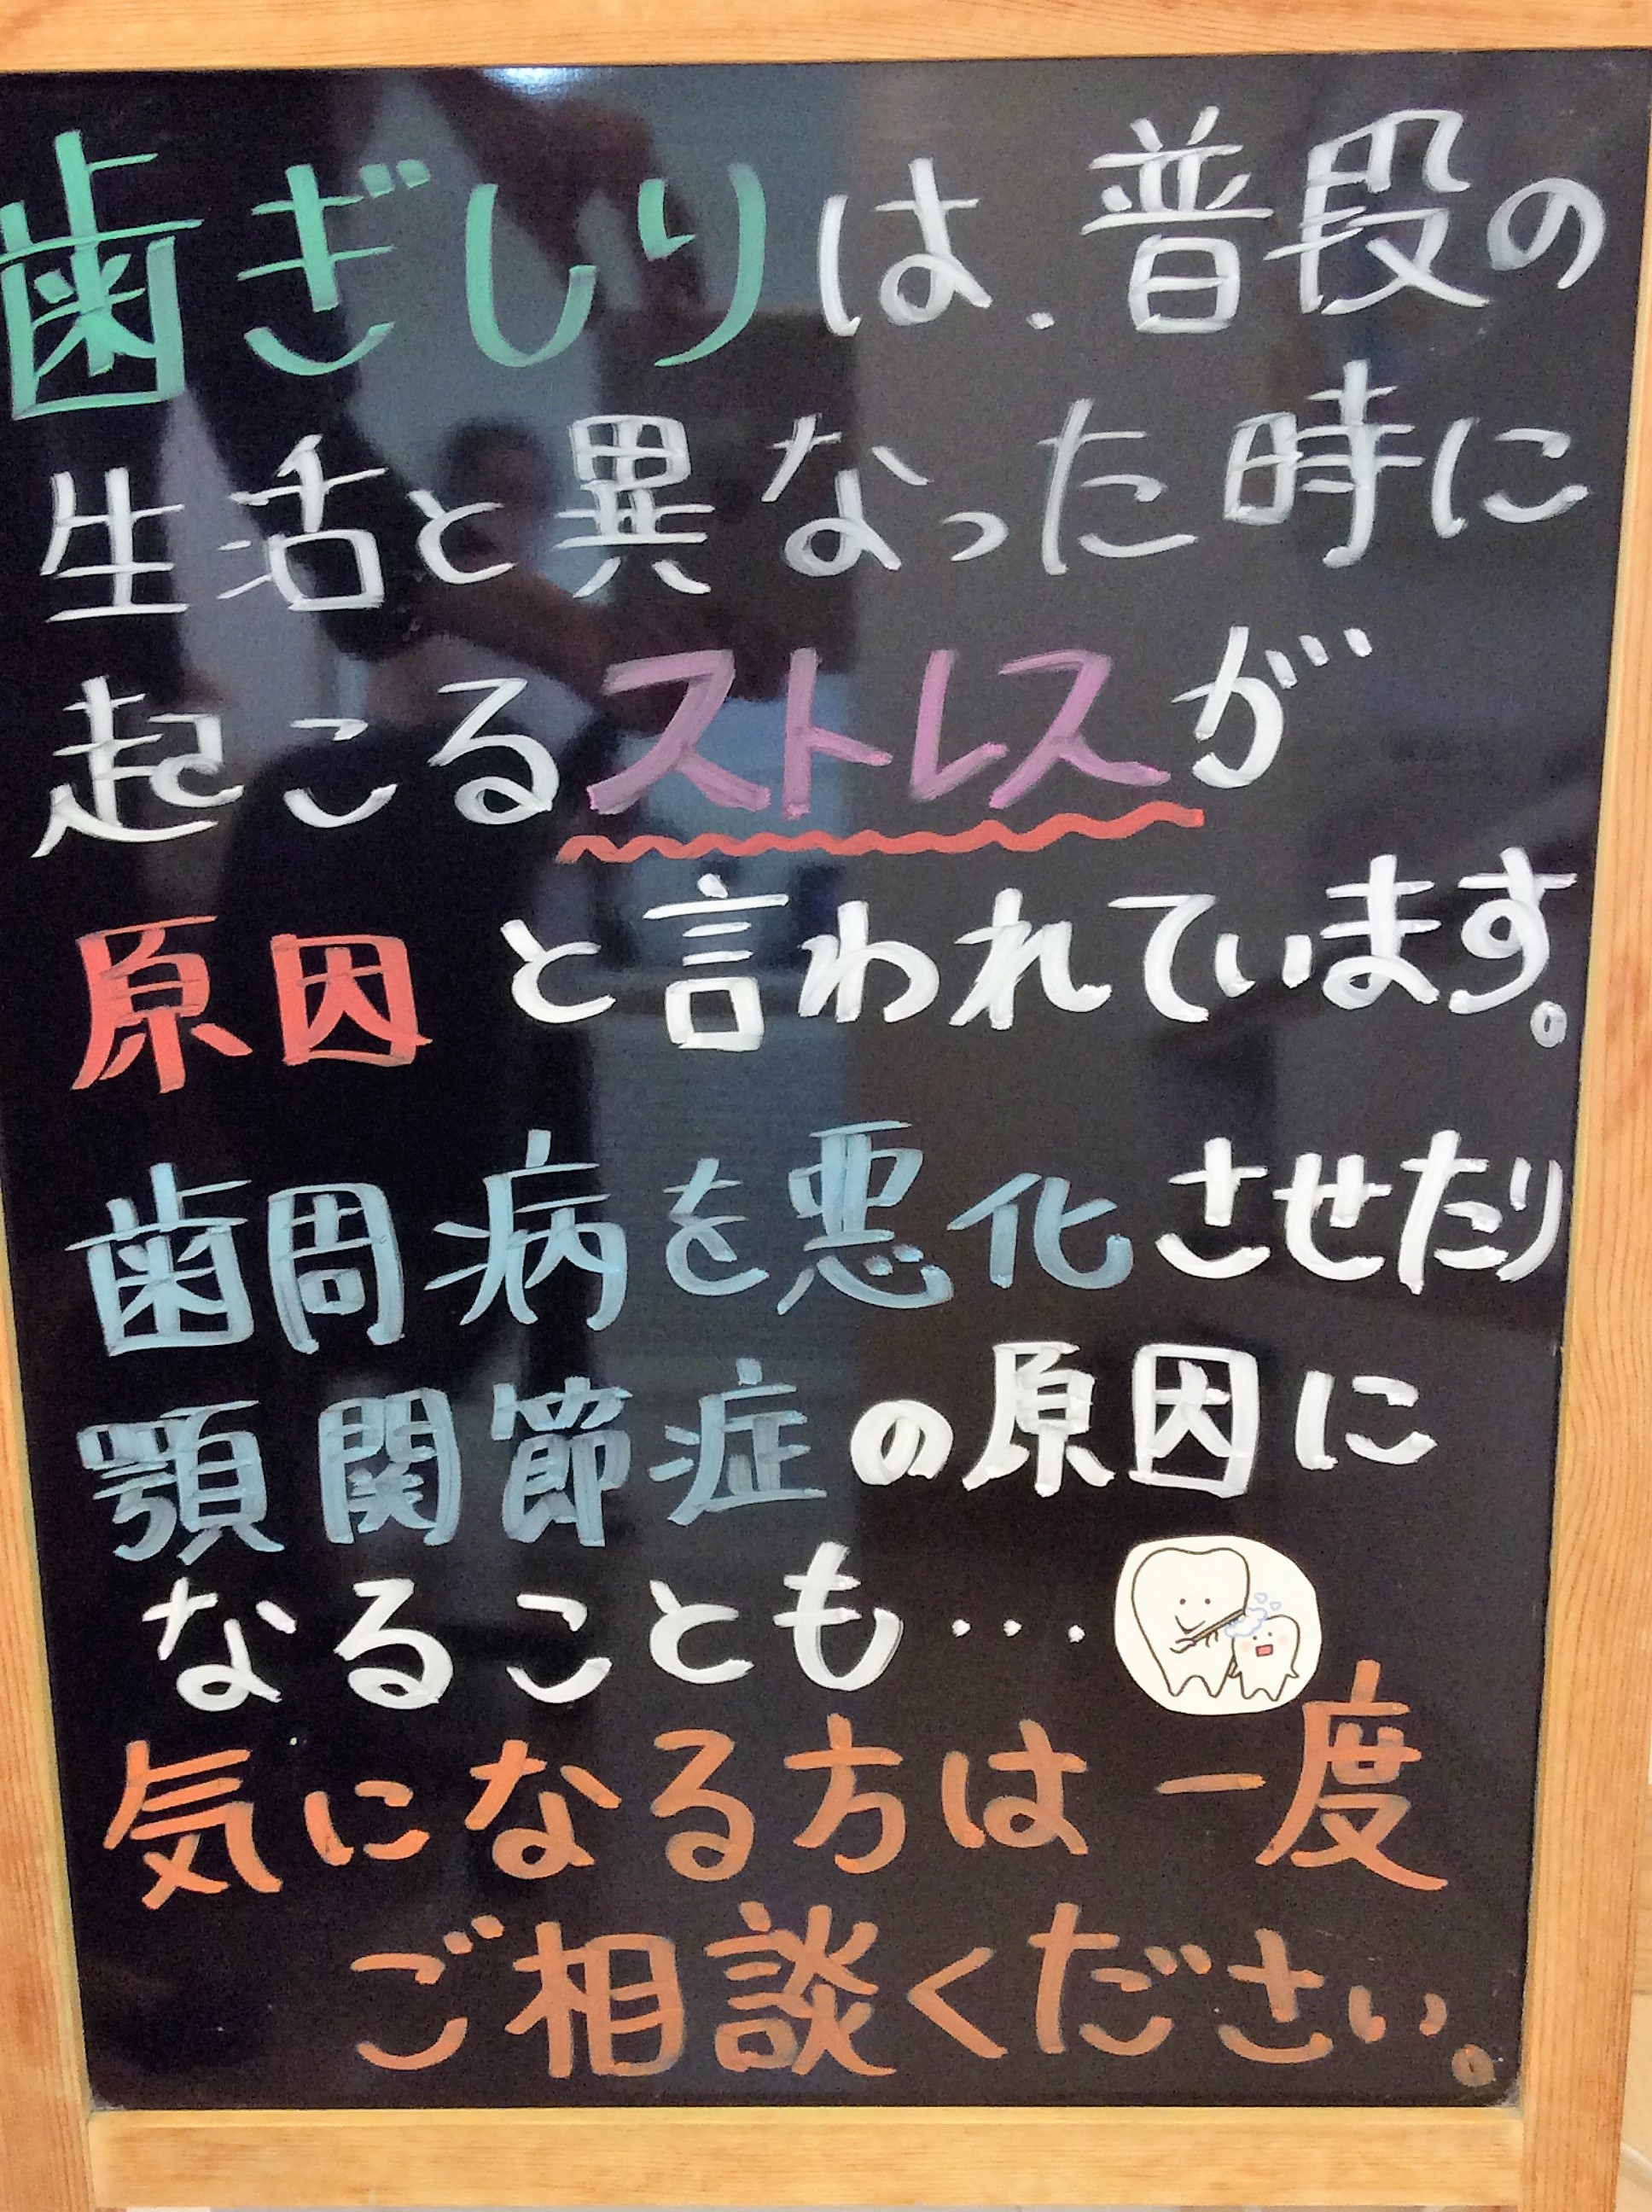 歯ぎしりは、普段の
生活と異なった時に
起こるストレスが
原因と言われています。
歯周病を悪化させたり
顎関節症の原因に
なることも…
気になる方は一度
ご相談ください。